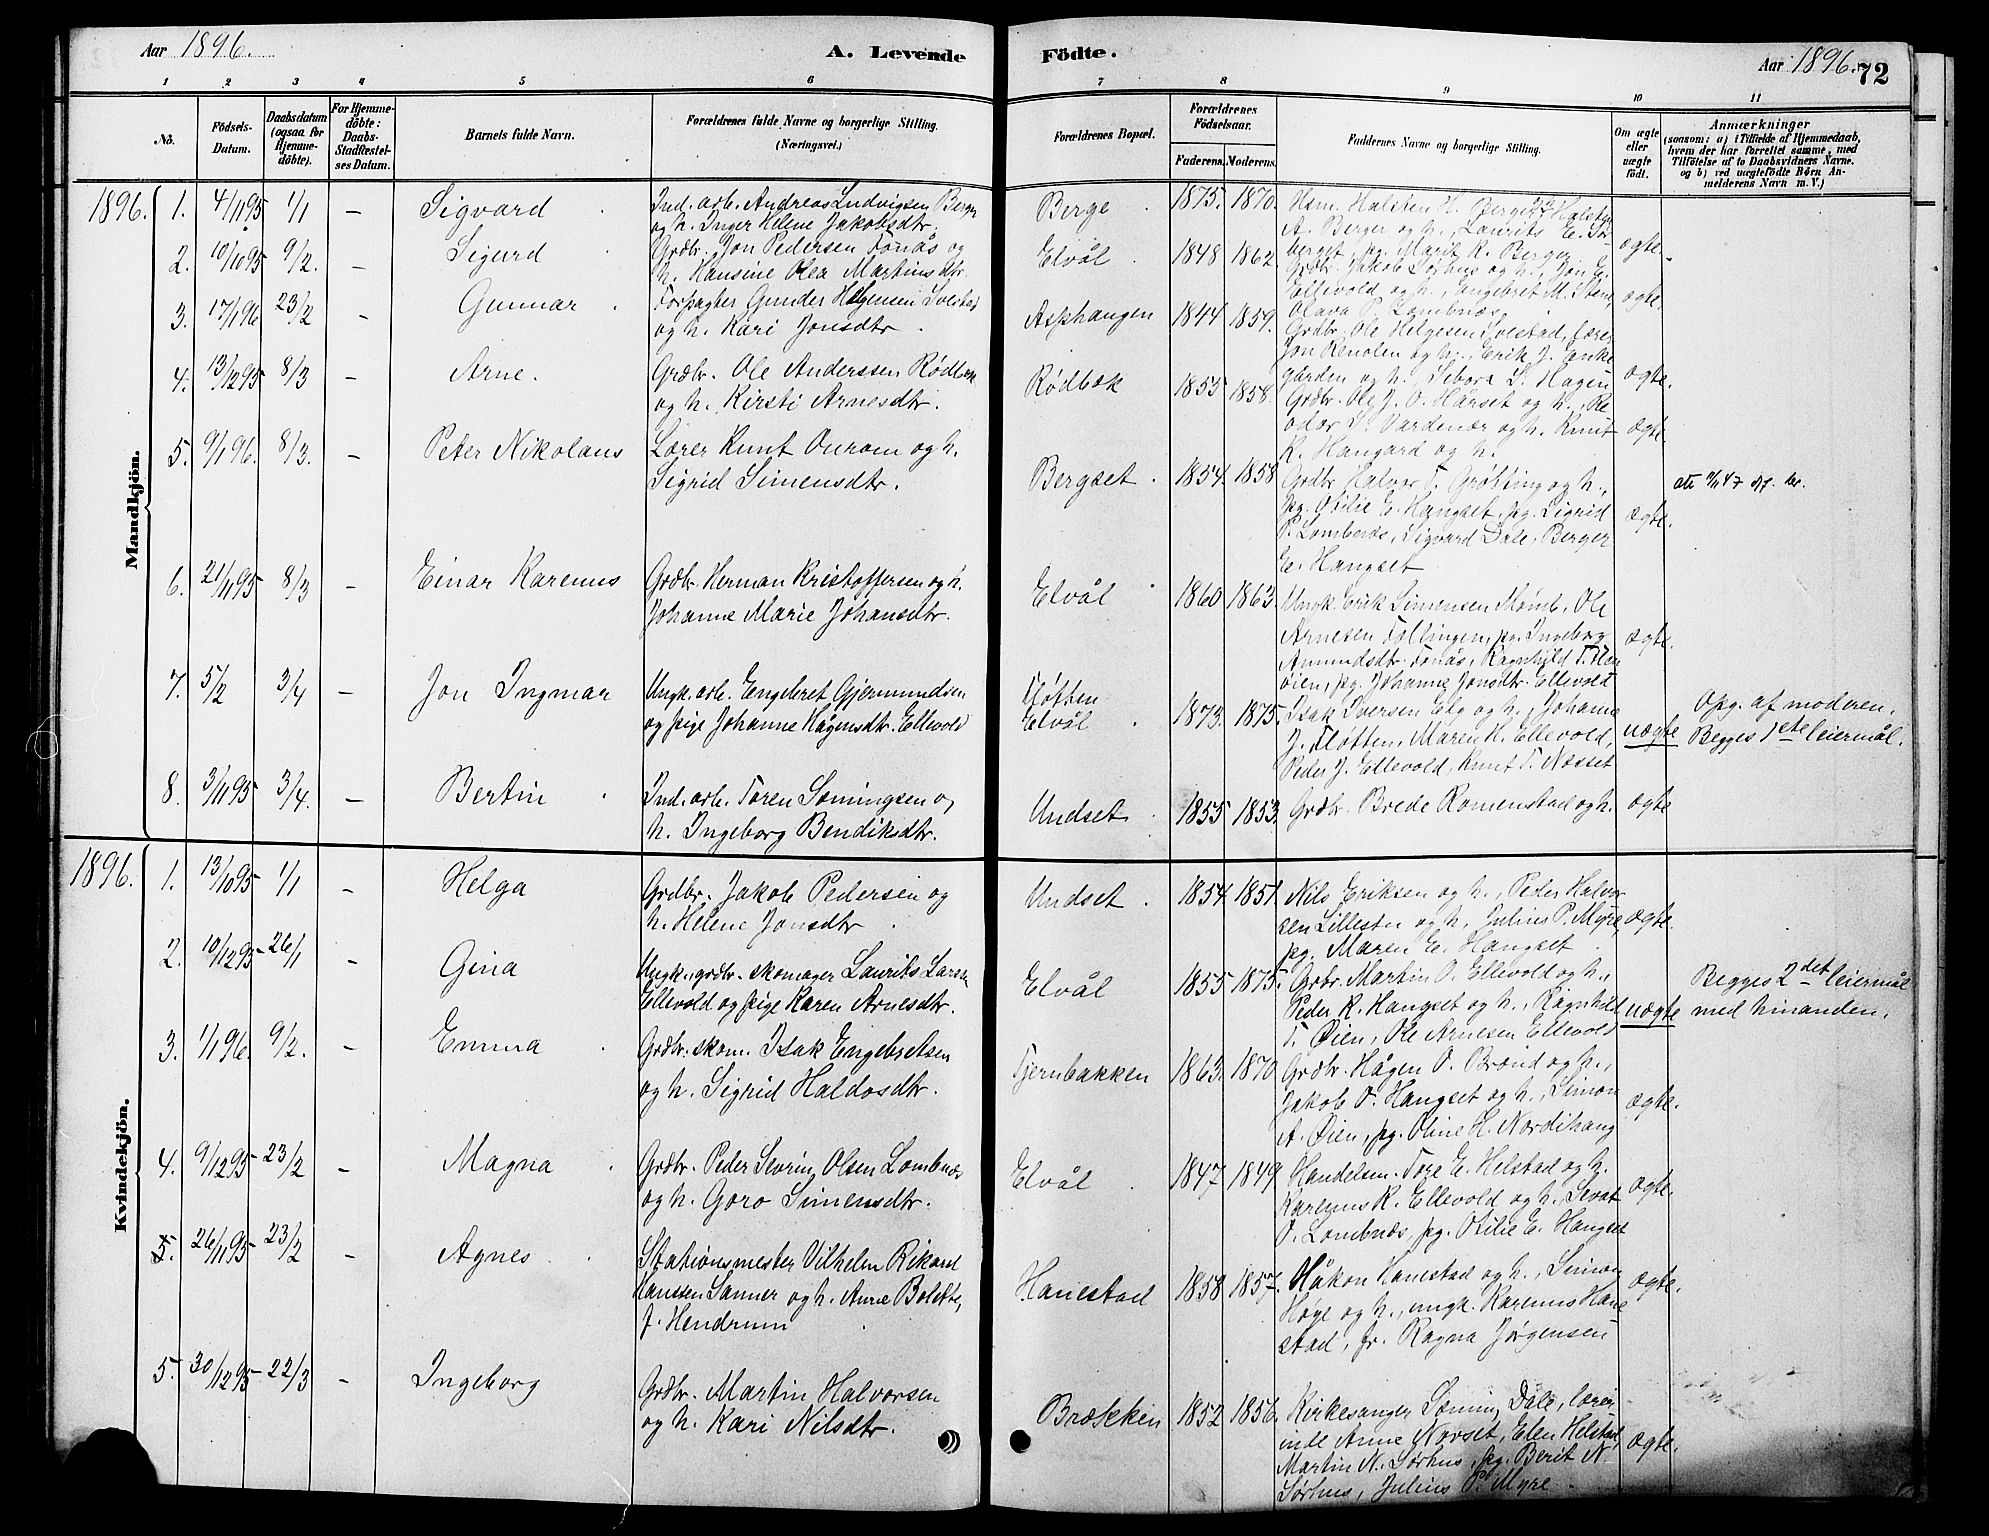 Aar 1896. A. Levende Födte. Aar 1896. 72
1 2 3 4 5 6 7 8 9 10 11
No. Födsels-Datum. Daabsdatum (ogsaa for Hjemmedöbte). For Hjemmedöbte: Daabs-Stadfæstelses Datum. Barnets fulde Navn. Forældrenes fulde Navne og borgerlige Stilling. (Næringsvei.) Forældrenes Bopæl. Forældrenes Födselsaar. Faderens. Moderens. Faddernes Navne og borgerlige Stilling. Om ægte eller uægte födt. Anmærkninger (saasom: a) i Tilfælde af Hjemmedaab, hvem der har forrettet samme, med Tilföielse af to Daabsvidners Navne. og b) ved uægtefödte Börn Anmelderens Navn m. V.)
Mandkjön.
1896. 1. 4/11 95 1/1 — Sigvard Ind. arb. Andreas Ludvigsen Berge Berge 1875. 1870. Hsm. Halsten H. Berger, Halsten
og h. Inger Helene Jakobsdtr. A. Berger og h., Laurits E. Sø- ægte.
berget, pg. Marit K. Berger
2. 10/10 95 9/2. — Sigurd Grdbr. Jon Pedersen Fonås og Elvål 1848 1862 Grdbr. Jakob Sørhus og h., Jon E.
h. Hansine Olea Martinsdtr. Ellevold og h., Engebret M. Stene, ægte.
Olava P. Lombnæs,
3. 17/1 96 23/2 — Gunnar Forpagter Gunder Helgensen Ivelstad Asphaugen 1844 1859. Grdbr. Ole Helgesen Ivelstad, lærer
og h. Kari Jonsdtr. Jon Renolen og h., Erik J. Enke
gården og h., Sebora S. Hagen ægte.
4. 13/12 95 8/3 — Arne. Grdbr. Ole Anderssen Rødbæk Rødbæk 1855 1858. Grdbr. Ole J. O. Harset og h., Re
og h. Kirsti Arnesdtr. odor S. Vardenær og h. Knut ægte.
K. Haugard og h.
5. 9/1 96. 8/3. — Peter Nikolaus Lærer Knut Ourom og h. Bergset 1854. 1858 Grdbr Halvor T. Grøtting og h.,
Sigrid Simensdtr. pg. Otilie E. Hangset, pg. Sigrid ægte.
P. Lombnæs, Sigvard Dale, Berger
E. Hangset
6. 21/11 95 8/3 — Einar Karenus Grdbr. Herman Kristoffersen og h. Elvål 1860 1863. Ungk. Erik Simensen Momb, Ole
Johanne Marie Johansdtr. Arnesen Fyllingen, pg. Ingeborg ægte.
Amundsdtr. Fonås, Ragnhild T. Flon
øien, pg. Johanne Jonsdtr. Ellevold
7. 5/2 3/4 — Jon Ingmar Ungk. arb. Engebret Gjermundsen Fløtten 1873. 1875. Isak Iversen Elg og h., Johanne Opg. af moderen.
og pige Johanne Hågensdtr. Ellevold Elvål J. Fløtten, Maren H. Ellevold, uægte Begges 1ste leiermål.
Peder J. Ellevold, Knut T. Næsset
8. 3/11 95 3/4. — Bertin Ind. arb. Toren Sømingsen og Undset 1855 1853. Grdbr. Brede Romenstad og h. ægte
h. Ingeborg Bendiksdtr.
Kvindekjön.
1896. 1. 13/10 95 1/1 — Helga Grdbr. Jakob Pedersen og Undset 1854. 1851 Nils Eriksen og h., Peder Halvor
h. Helene Jonsdtr sen Lillestu og h., Julius P. Myre, ægte.
pg. Maren E. Hangset.
2. 10/12 95 26/1 — Gina Ungk. grdbr. skomager Laurits Larsen Elvål 1855 1875. Grbr. Martin O. Ellevold og h., Begges 2det leiermål
Ellevold og pige Karen Arnesdtr. Peder K. Hangset og h., Ragnhild uægte med hinanden.
T. Øien, Ole Arnesen Ellevold
3. 1/1 96. 9/2. — Emma Grdbr. skom. Isak Engebretsen Tjernbakken 1863. 1870 Grdbr. Hågen O. Brønd og h.,
og h. Sigrid Haldosdtr. Jakob O. Hangset og h., Simon ægte.
A. Øien, pg. Oline H. Nordihaug
4. 9/12 95 23/2 — Magna Grdbr. Peder Severin Olsen Lombnæs Elvål 1847 1849 Handelsm. Tore E. Helstad og h.
og h. Goro Simensdtr. Karenus K. Ellevold og h., Sevat ægte.
O. Lombnæs, pg. Otilie E. Hangset
5. 26/11 95 23/2 — Agnes Stationsmester Vilhelm Rikard Hanestad 1858 1857. Håkon Hanestad og h., Simon
Hanssen Sanner og h. Anne Bolette Hoye og h., ungk. Karenus Hane ægte.
J. Hendrum stad, fr. Ragna Jørgensen
5. 30/12 95 22/3 — Ingeborg Grdbr. Martin Halvorsen Brækken 1852 1856. Kirkesanger Søming Dale, lærer
og h. Kari Nilsdtr. inde Anne Norset, Elen Helstad, ægte.
Martin N. Sørhus, pg. Berit N.
Sørhus, Julius P. Myre.